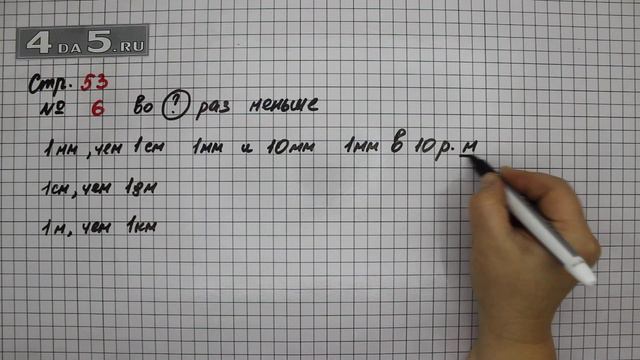 4 DA 5.RU
Стр. 53
№ 6 во ? раз меньше
1мм, чем 1см 1мм и 10мм 1мм в 10р. м
1см, чем 1дм
1м, чем 1км